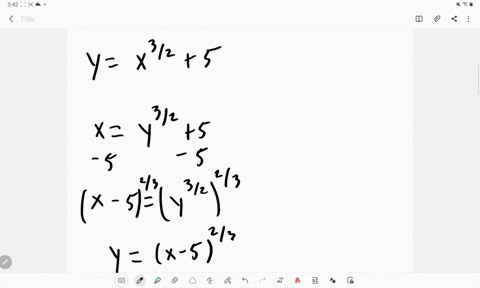 3:42
Title
y = x^{3/2} + 5
x = y^{3/2} + 5
-5 -5
(x - 5)^{2/3} = (y^{3/2})^{2/3}
y = (x-5)^{2/3}